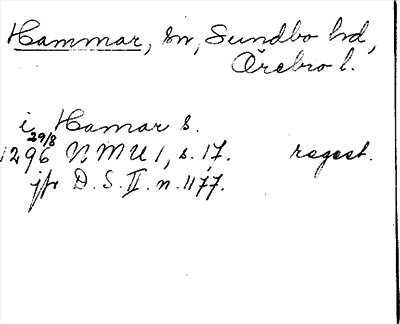 Hammar, sn, Sundbo hd,
Örebro l.
i Hamar s.
29/8
1296 NMU 1, s. 17. regest.
jfr D.S. II. n. 1177.